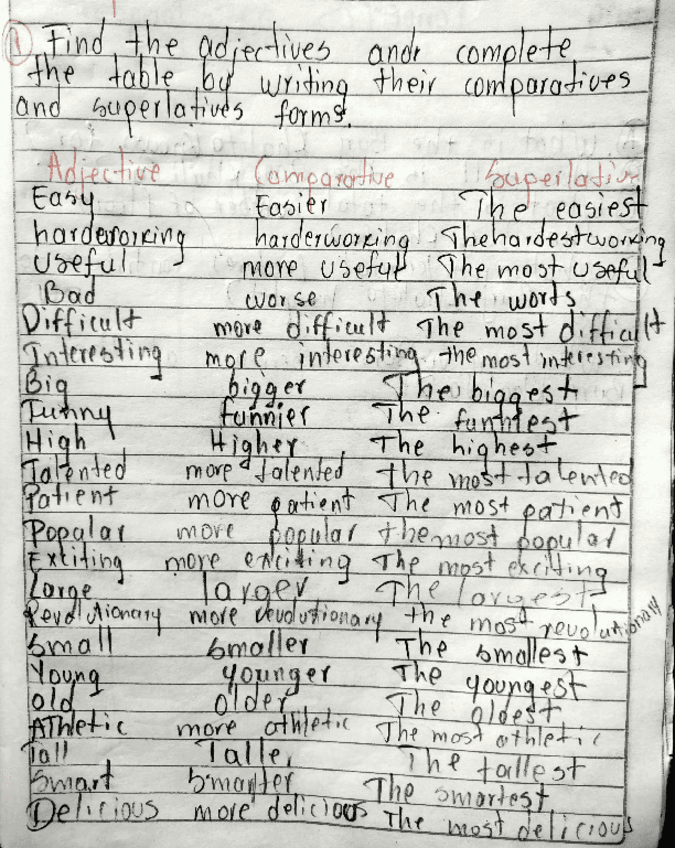 1 Find the adjectives and complete
the table by writing their comparatives
and superlatives forms.
Adjective Comparative Superlative
Easy Easier The easiest
harderworking harderworking The hardestworking
useful more useful The most useful
Bad worse The words
Difficult more difficult The most difficult
Interesting more interesting the most interesting
Big bigger The biggest
Funny funnier The funniest
High Higher The highest
Talented more talented the most talented
Patient more patient The most patient
Popular more popular the most popular
Exciting more exciting The most exciting
Large larger The largest
Revolutionary more revolutionary the most revolutionary
Small smaller The smallest
Young younger The youngest
old older The oldest
Athletic more athletic The most athletic
Tall Taller The tallest
Smart Smarter The smartest
Delicious more delicious The most delicious